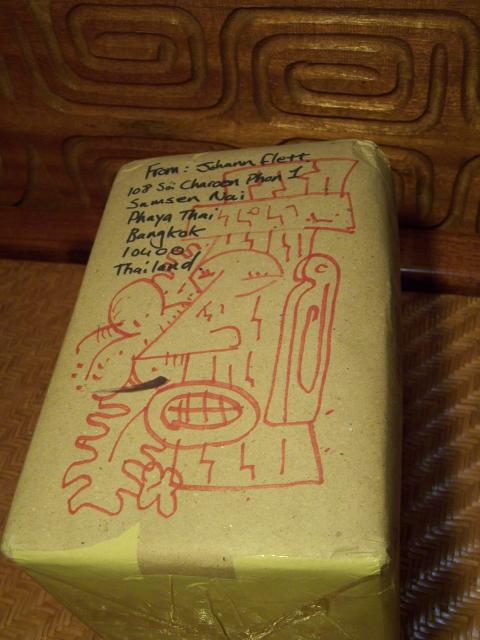 From: Johann Flett
108 Soi Charoen Phon 1
Samsen Nai
Phaya Thai
Bangkok
10400
Thailand